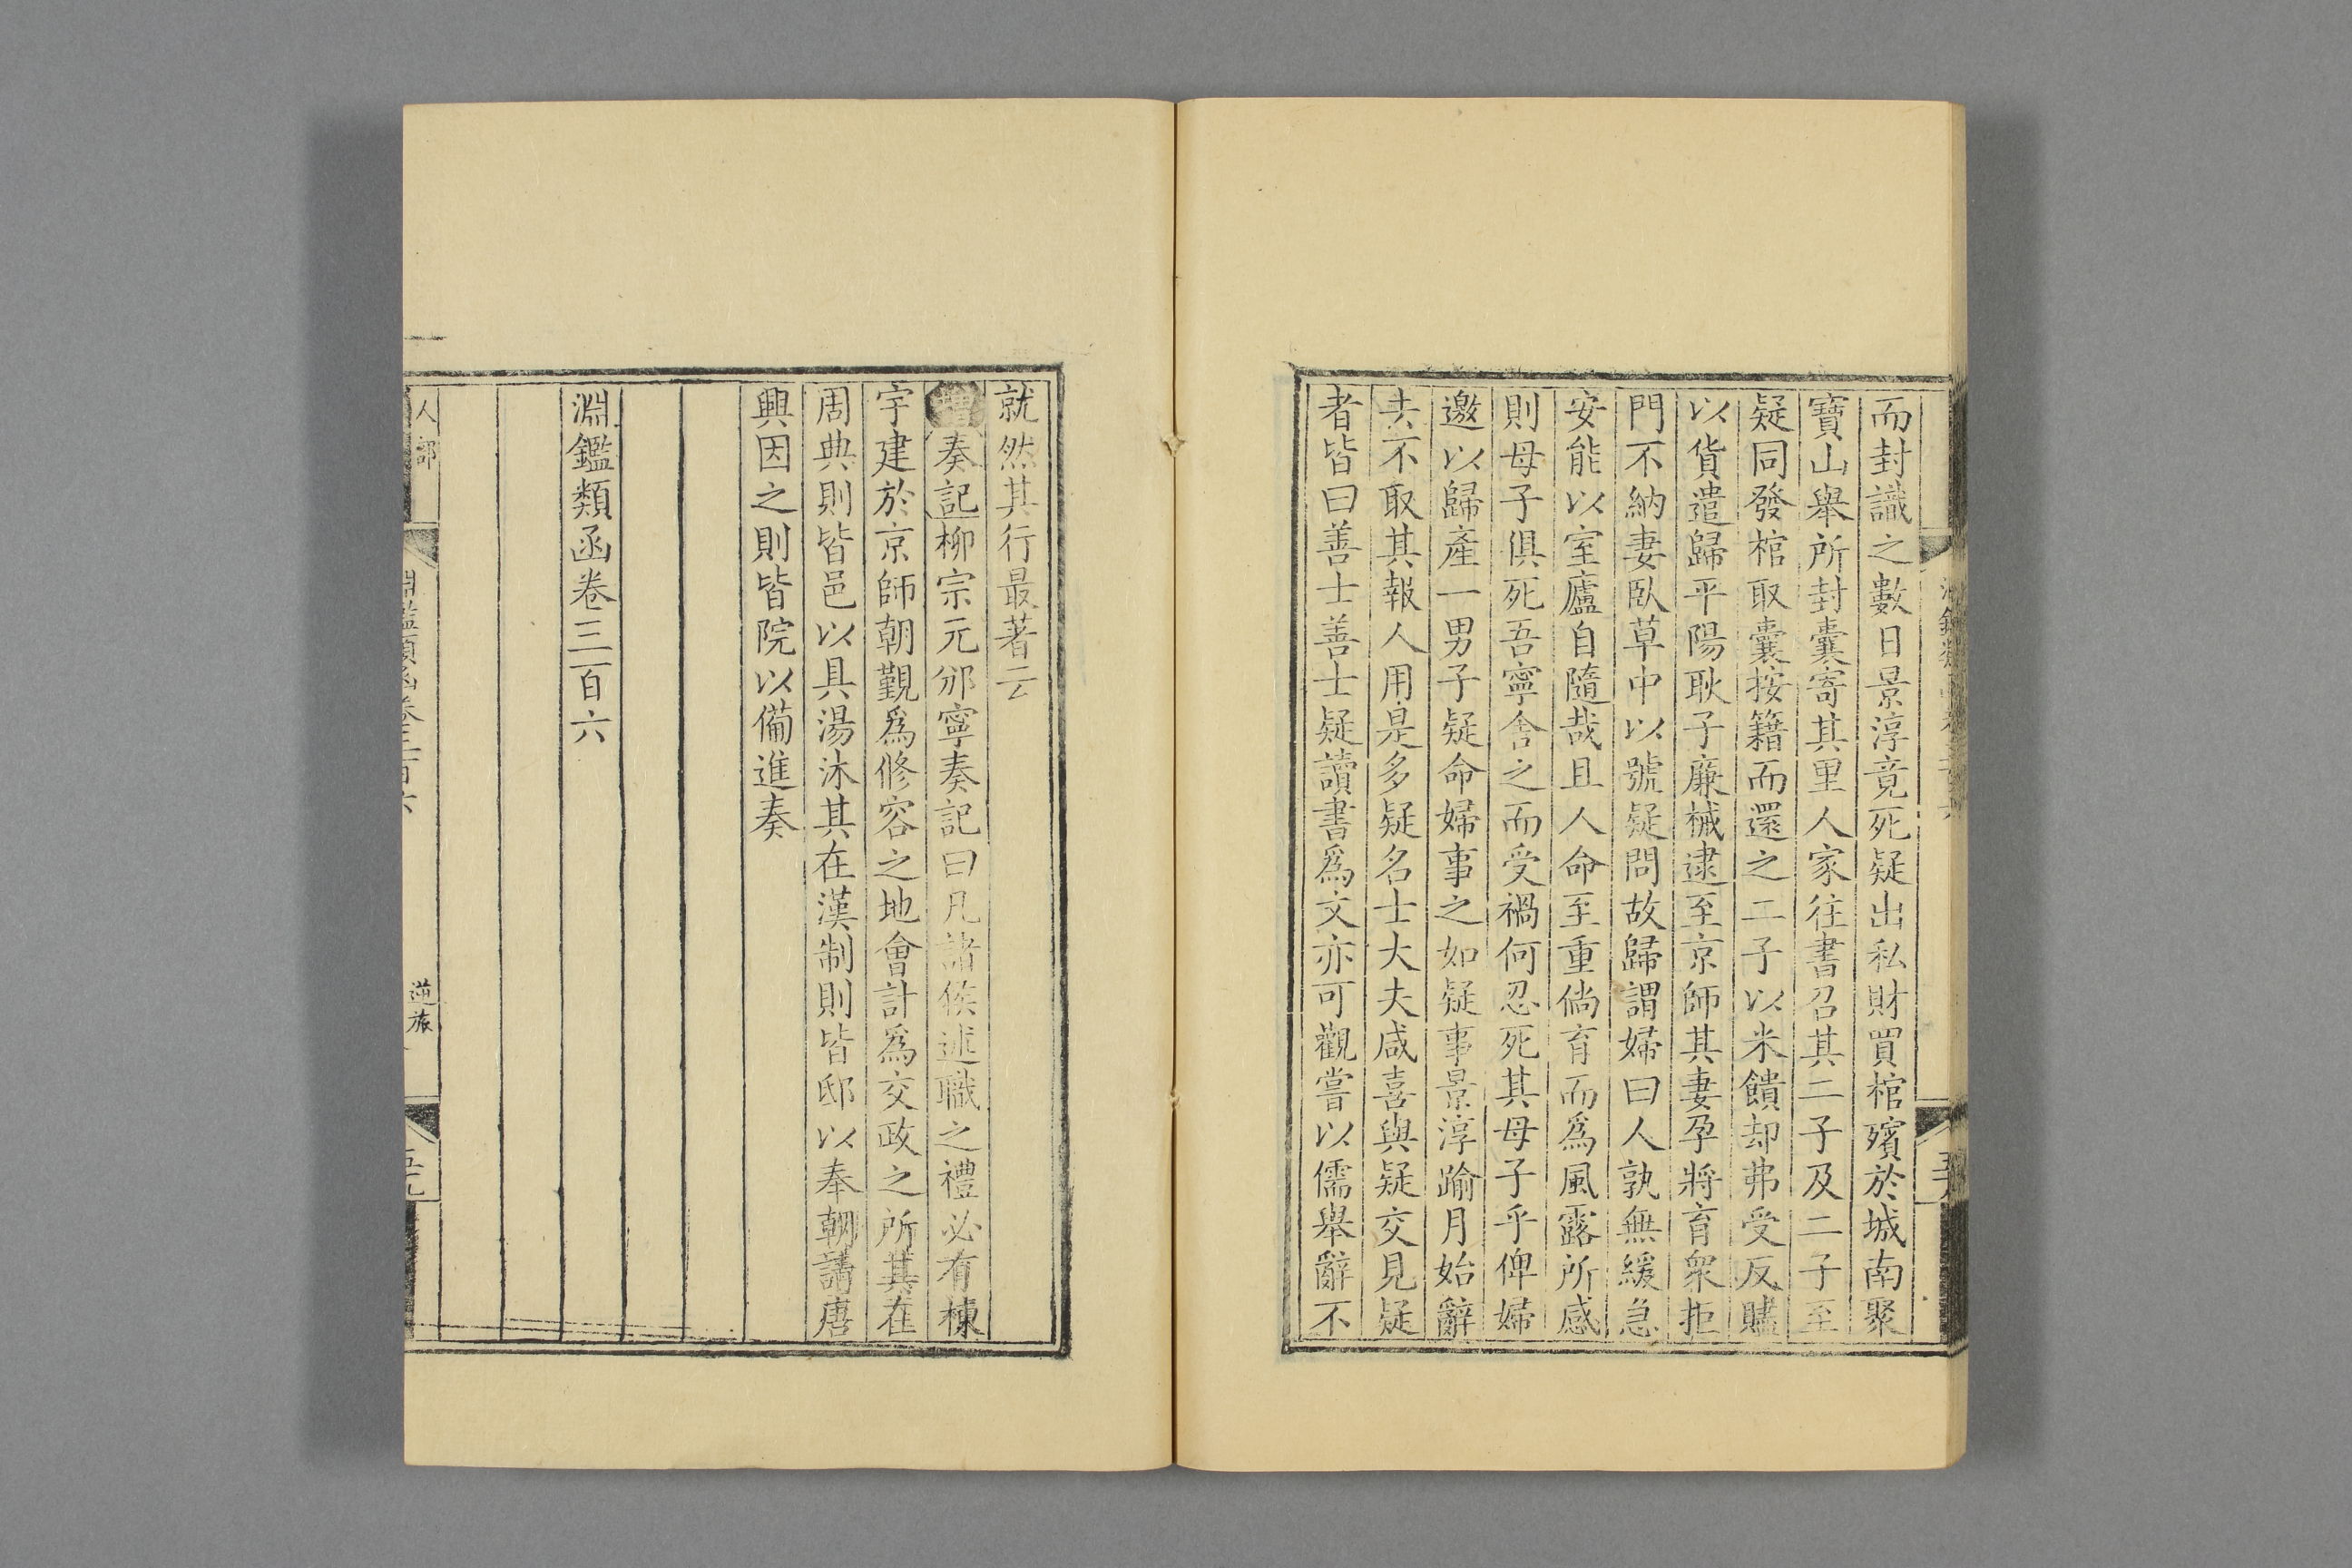 而封識之數日景淳竟死疑出私財買棺殯於城南聚
寶山舉所封囊寄其里人家往書召其二子及二子至
疑同發棺取囊按籍而還之二子以米饋却弗受反贐
以貨遣歸平陽耿子廉械逮至京師其妻孕將育衆拒
門不納妻臥草中以號疑問故歸謂婦曰人孰無緩急
安能以室廬自隨哉且人命至重倘育而爲風露所感
則母子俱死吾寧舍之而受禍何忍死其母子乎俾婦
邀以歸產一男子疑命婦事之如疑事景淳踰月始辭
去不取其報人用是多疑名士大夫咸喜與疑交見疑
者皆曰善士善士疑讀書爲文亦可觀嘗以儒舉辭不
就然其行最著云
增奏記柳宗元邠寧奏記曰凡諸侯述職之禮必有棟
宇建於京師朝覲爲修容之地會計爲交政之所其在
周典則皆邑以具湯沐其在漢制則皆邸以奉朝請唐
興因之則皆院以備進奏
淵鑑類函卷三百六
人部
淵鑑類函卷三百六
逆旅